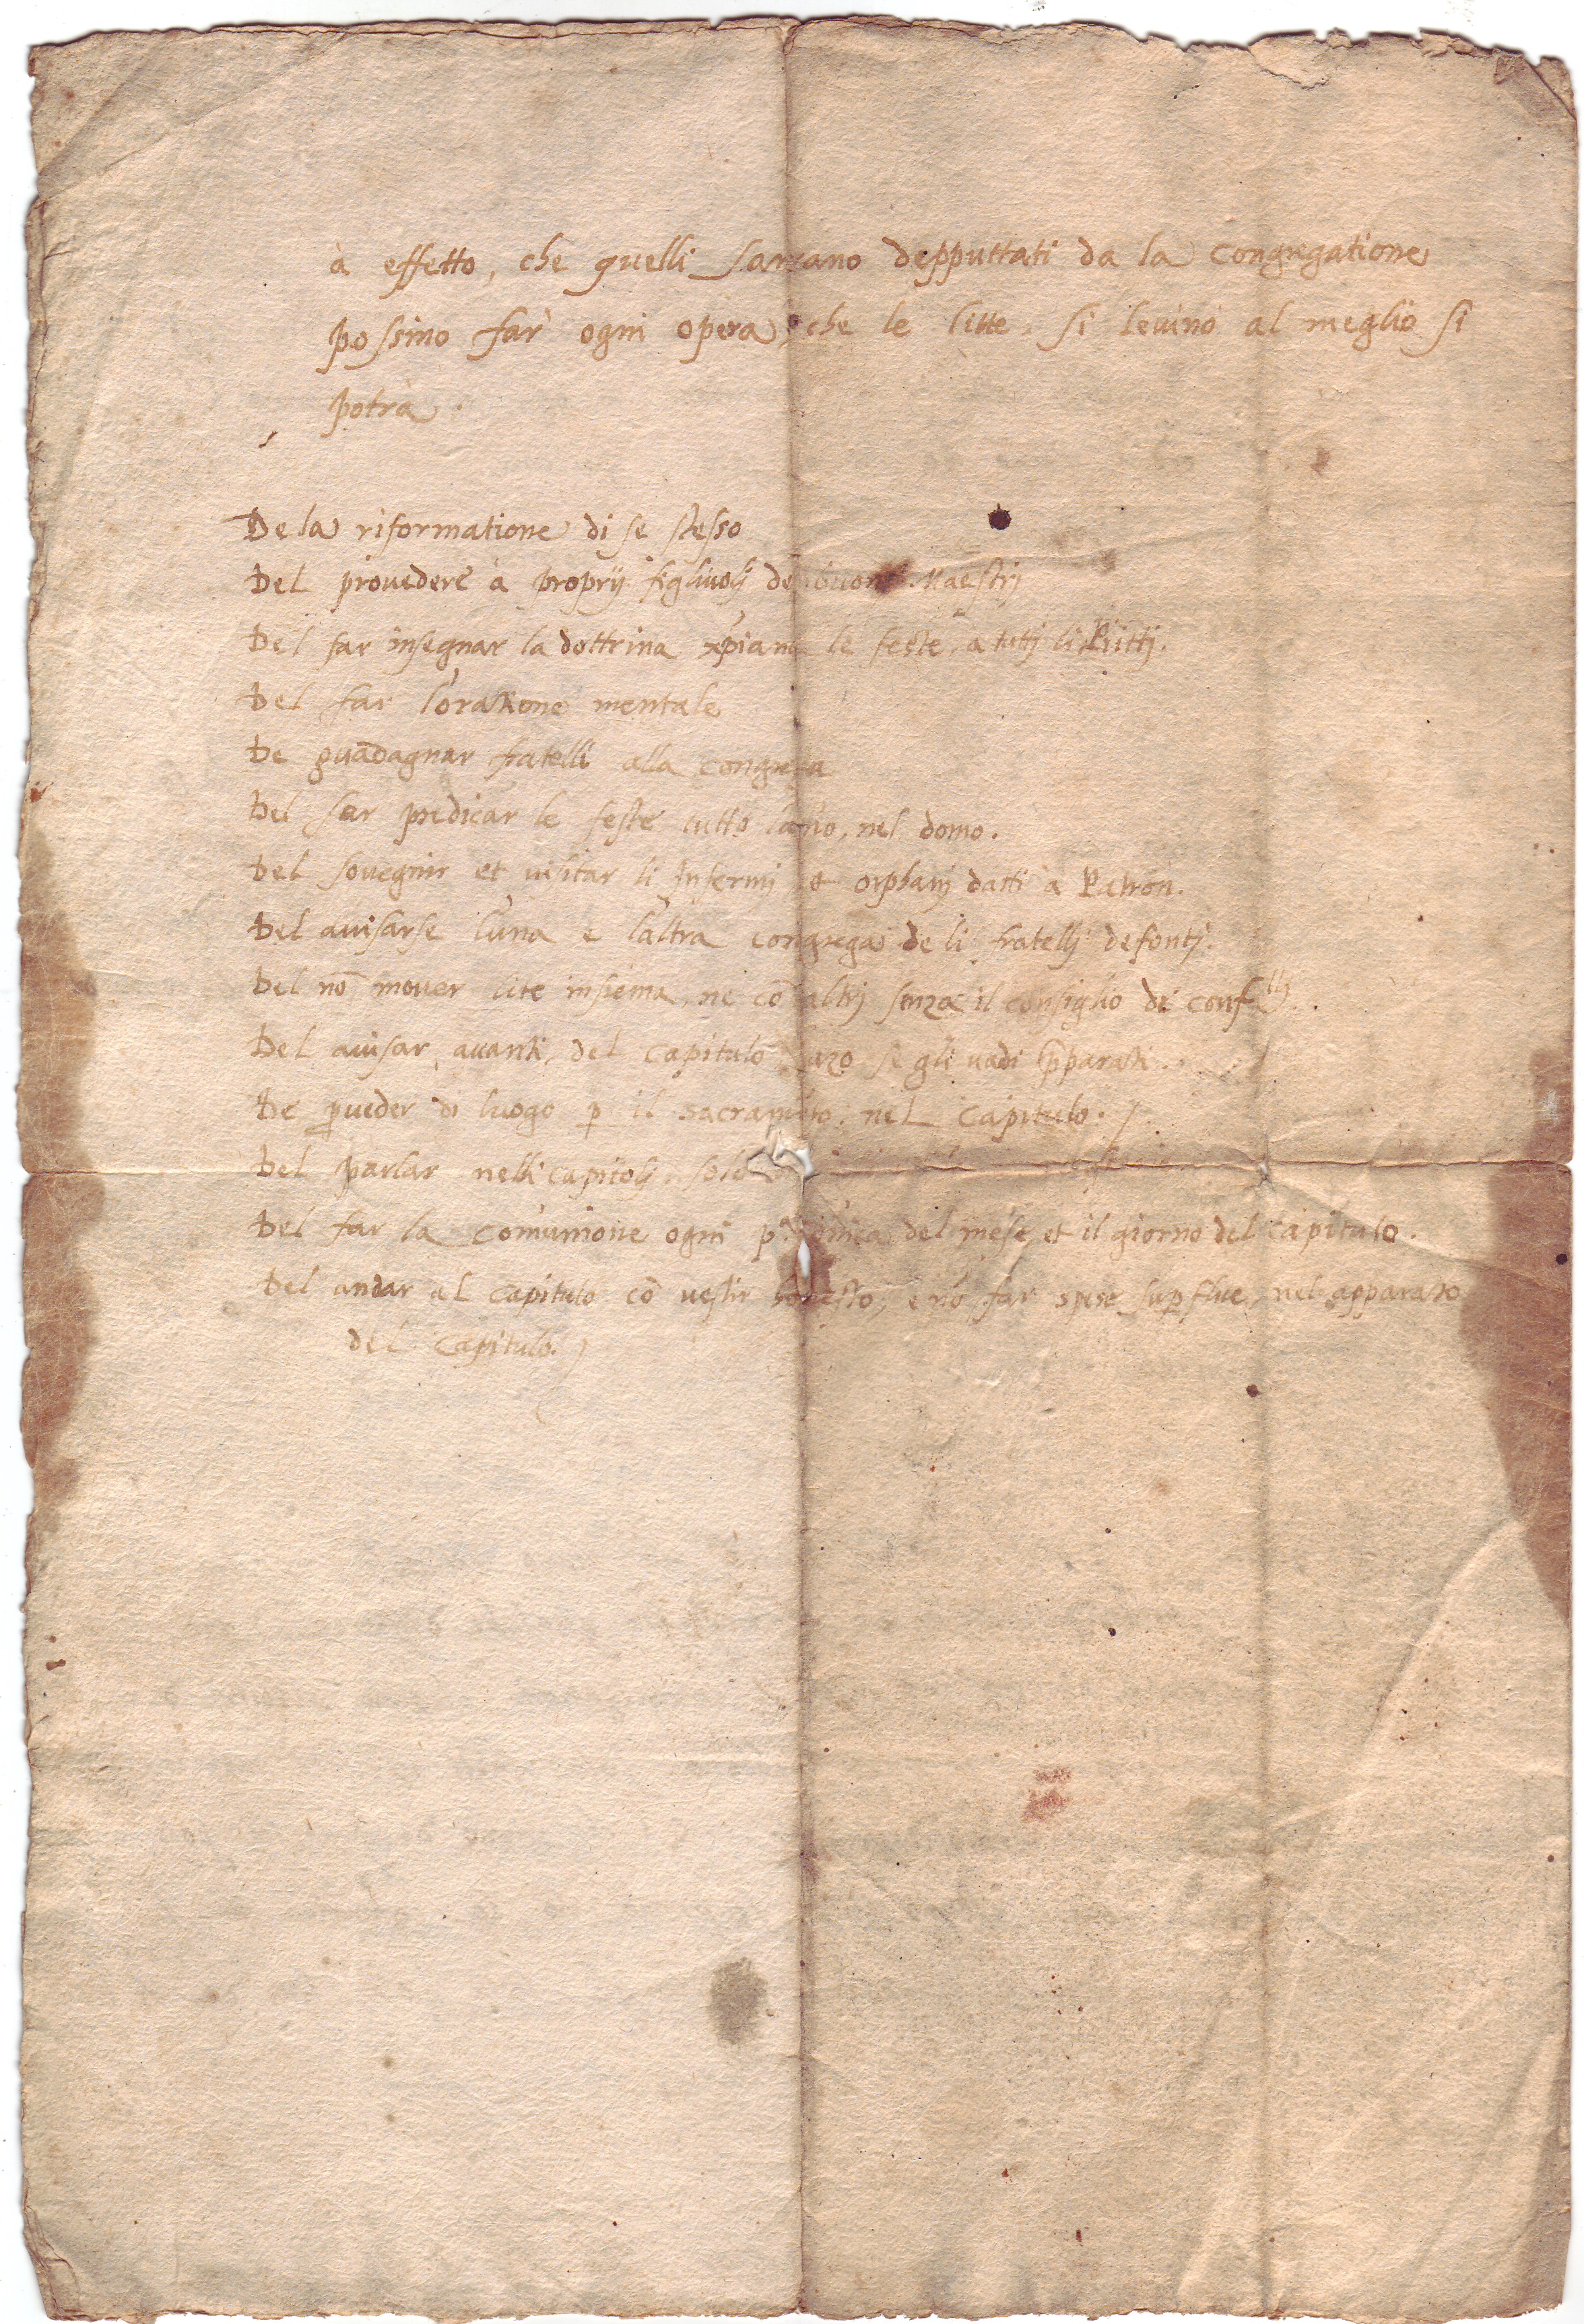 à effetto, che quelli sarrano depputtati da la congregatione
possino far ogni opera, che le litte, si levino al meglio si
potrà.
De la riformatione di se stesso
Del provedere à proprij figlivolj de buoni Maestrj
Del far insegnar la dottrina xp̃iana le feste, a tuttj li Puttj.
Del far l'oratione mentale
De guadagnar fratelli alla congrega
Del far predicar le feste tutto l'año, nel domo.
Del sovegnir et visitar li Infermj et orphanj datti à Patron.
Del avisarse l'una e l'altra congrega de li fratellj defontj.
Del nõ mover lite insiema, ne cõ altrj senza il consiglio di conf.llj.
Del avisar, avanti, del capitulo se gli vadi p̃parati.
De p̱veder di luogo p̱ il sacram̃to, nel capitulo.
Del parlar nelli capitolj
Del far la comunione ogni p.a del mese, et il giorno del capitulo.
Del andar al capitulo cõ vestir honesto, e nõ far spese sup̱flue, nel apparato
del capitulo.